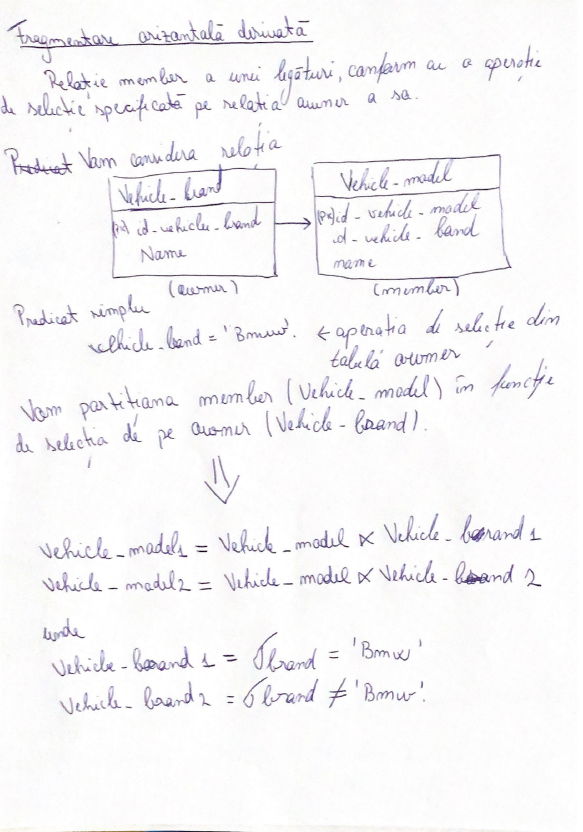 Fragmentare orizontală derivată
Relație member a unei legături, conform cu o operație
de selecție specificată pe relația owner a sa.
Predicat Vom considera relația
Vehicle_brand
(PK) id_vehicle_brand
Name
(owner)
Vehicle_model
(PK) id_vehicle_model
id_vehicle_band
name
(member)
Predicat simplu
vehicle_band = 'Bmw'. ← operația de selecție din
tabelă owner
Vom partiționa member (Vehicle_model) în funcție
de selecția de pe owner (Vehicle_brand).
⇓
Vehicle_model1 = Vehicle_model ⋉ Vehicle_brand 1
Vehicle_model2 = Vehicle_model ⋉ Vehicle_brand 2
unde
Vehicle_brand 1 = σ brand = 'Bmw'
Vehicle_brand 2 = σ brand ≠ 'Bmw'.